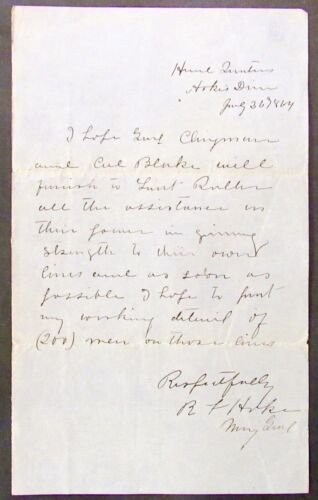 Head Quarters
Hoke's Divn
July 26th 1864
I hope Genl Clingman
and Col Blake will
furnish to Lieut Roller
all the assistance in
their power in giving
strength to their own
lines and as soon as
possible I hope to put
my working detail of
(200) men on those lines
Respectfully
R F Hoke
Maj Genl